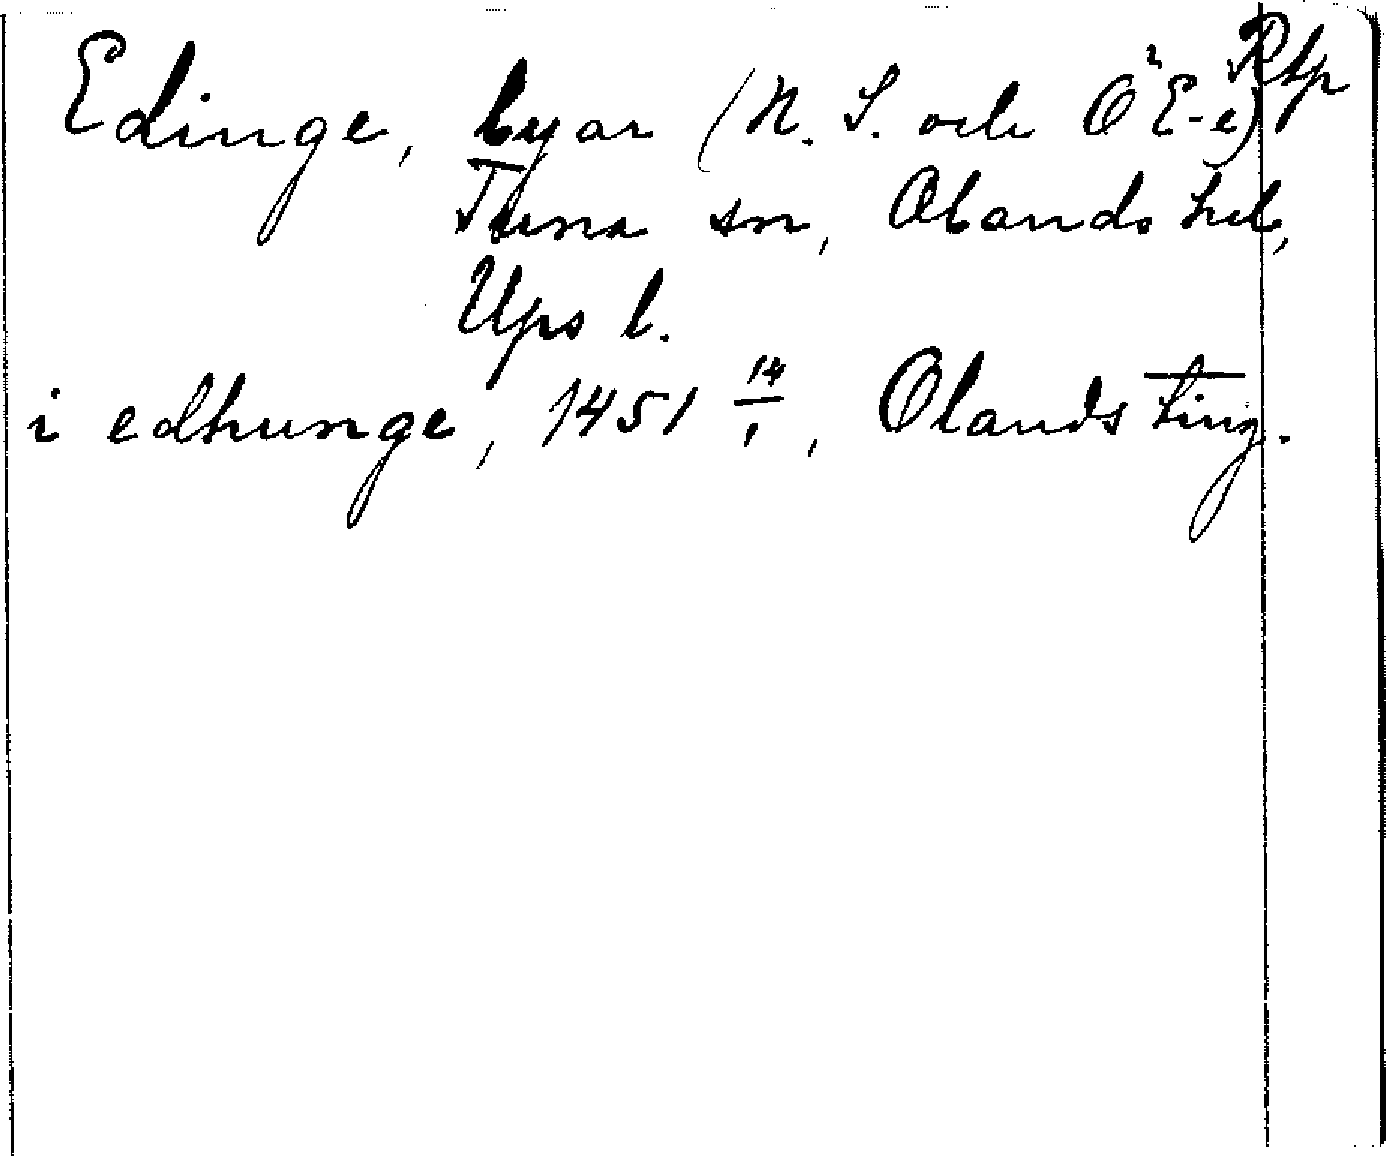 Rtp
Edinge, byar (N. S. och Ö E-e)
Tuna sn, Olands hd,
Ups l.
i edhunge, 1451 14/1, Olands ting.